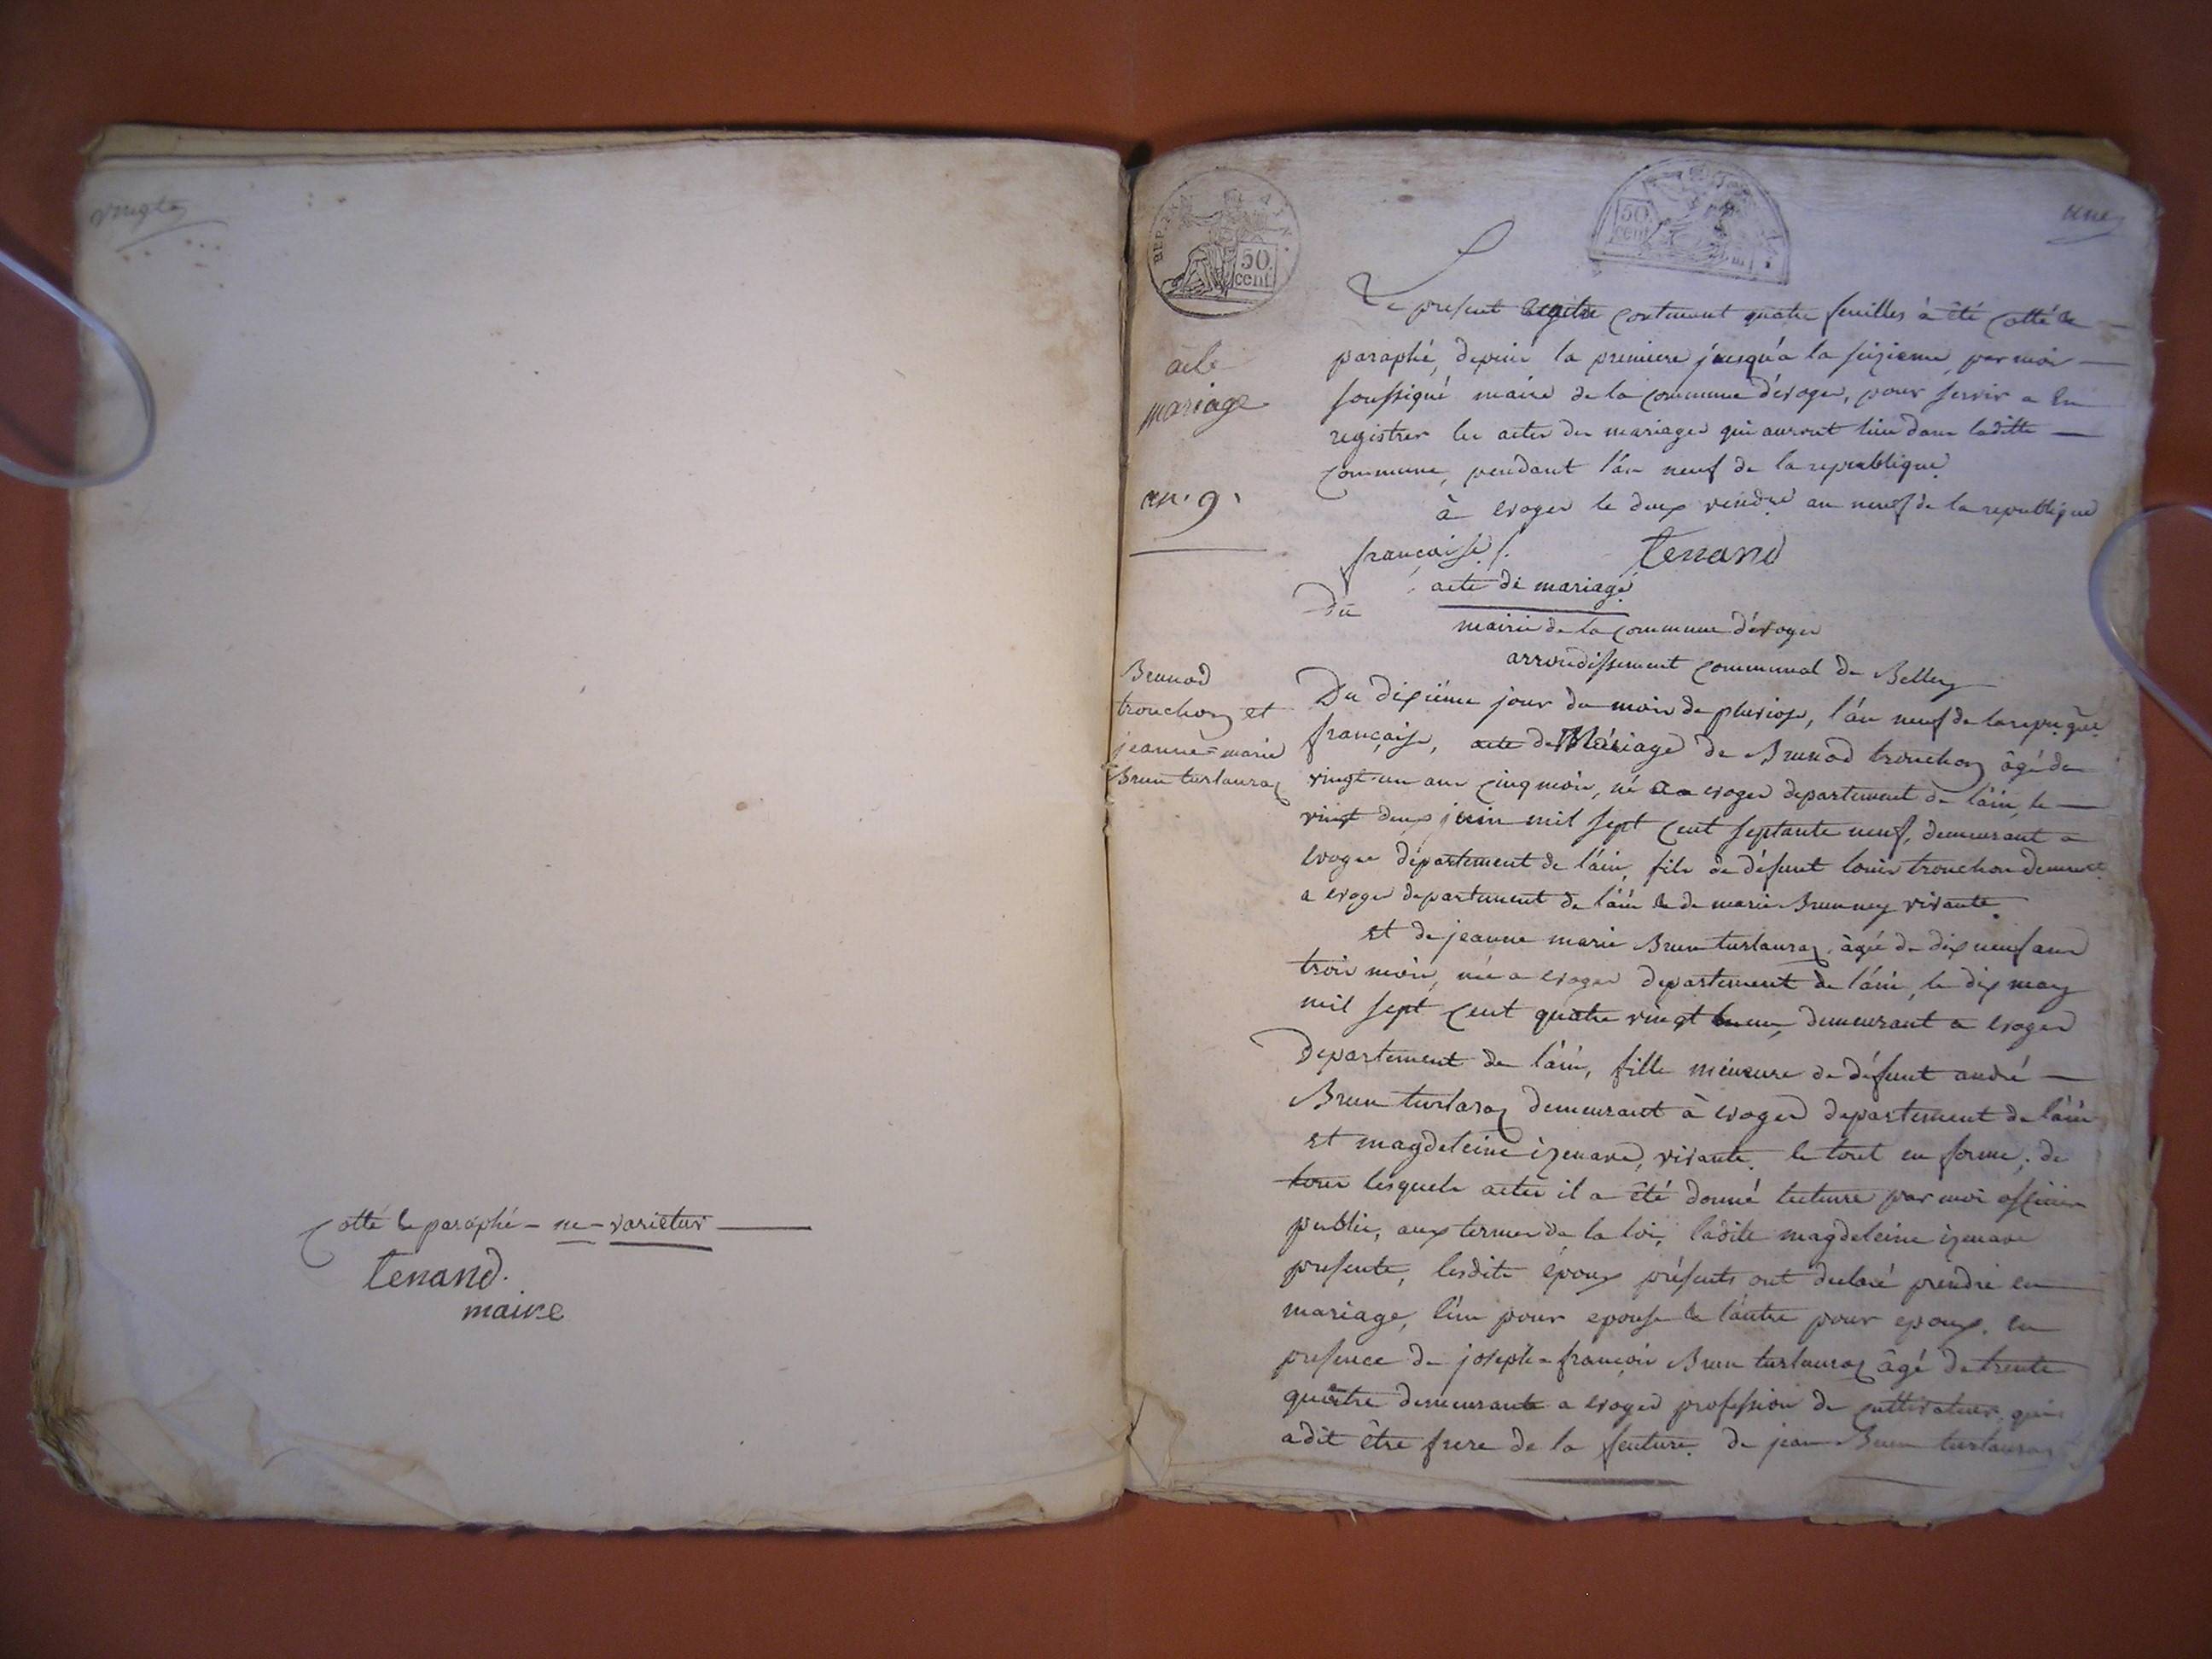 vingt
Cotté & paraphé - ne - varietur
tenand.
maire
REP. FRA
50
cent
50
cent
une
acte
mariage
an. 9.
Le present registre contenant quatre feuilles à été cotté &
paraphé, depuis la premiere jusqu'a la seizieme par moi
soussigné maire de la commune d'évoges, pour servir a en
registrer les actes des mariages qui auront lieu dans laditte
commune, pendant l'an neuf de la republique
à evoges le deux vendre an neuf de la republique
française /. tenand
acte de mariage
Du
mairie de la commune d'évoges
arrondissement communal de Belley
Brunod
trouchon et
jeanne=marie
Brun turlauraz
Du dixiéme jour du mois de pluviose, l'an neuf de la repu.que
française, acte de Mariage de Brunod trouchon âgé de
vingt-un ans cinq mois, né a evoges departement de l'ain, le
vingt deux juin mil sept cent septante neuf, demeurant a
evoges département de l'ain, fils de défunt louis trouchon demeurt
a evoges departement de l'ain & de marie Brunney vivante.
et de jeanne marie Brun turlauraz, âgée de dix neuf ans
trois mois, née a evoges departement de l'ain, le dix may
mil sept cent quatre vingt demeurant a evoges
Departement de l'ain, fille mineure de défunt andré
Brun turlaraz demeurant à evoges departement de l'ain
et magdeleine izenard, vivante. le tout en forme. de
tous lesquels actes il a été donné lecture par moi officier
public, aux termes de la loi, ladite magdeleine izenard
presente, lesdits époux présents ont declaré prendre en
mariage, l'un pour epouse & l'autre pour epoux. en
presence de joseph=françois Brun turlauraz âgé de trente
quatre demeurante a evoges profession de cultivateur qui
a dit être frere de la feuture. de jean Brun turlauraz